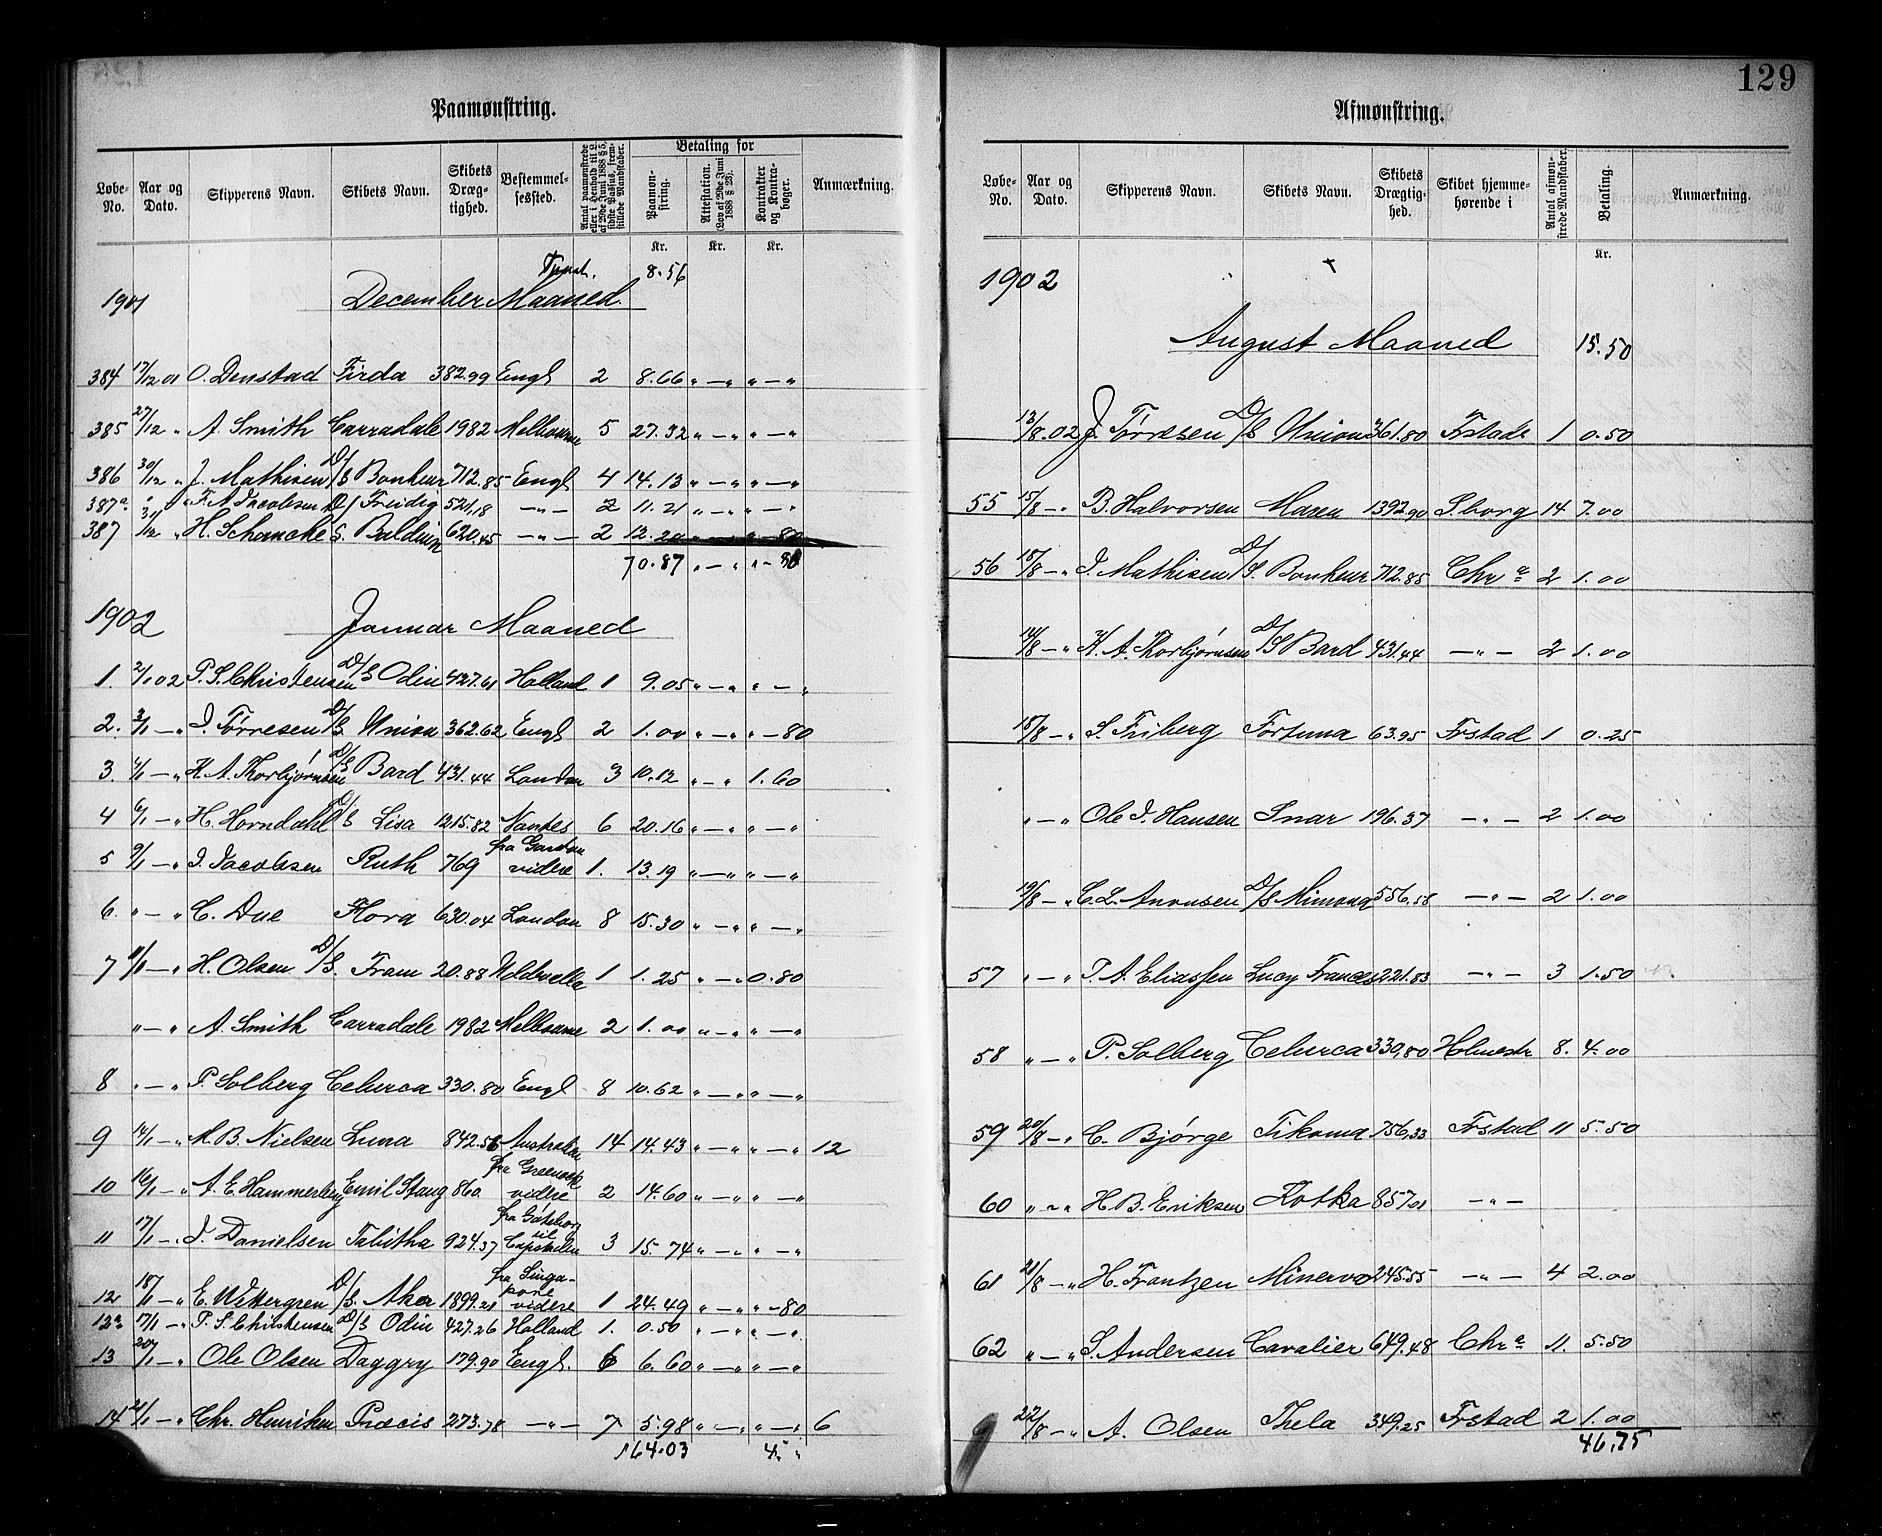 129
Paamønstring.
Løbe-No. | Aar og Dato. | Skipperens Navn. | Skibets Navn. | Skibets Dræg-tighed. | Bestemmel-sessted. | Antal paamønstrede eller i Henhold til L. af 29de Juni 1888 § 5, sidste Passus, frem-stillede Mandskaber. | Betaling for | Paamøn-string. | Attestation. (Lov af 29de Juni 1888 § 23). | Kontrakter og Kontra-bøger. | Anmærkning.
Kr. | Kr. | Kr.
Transt. 8.56
1901 December Maaned
384 17/12 01 O. Denstad Firda 382.99 Engl 2 8.66 " — " " — "
385 27/12 " A. Smith Carradale 1982 Melbourne 5 27.32 " — " " — "
386 30/12 " J. Mathisen D/S Bonheur 712.85 Engl 4 14.13 " — " " — "
387a " " F. A. Jacobsen D/S Freidig 521,18 — " — 2 11.21 " — " " — "
387 31/12 " H. Schancke S. Balduin 620.45 — " — 2 12.20 " — " " — 80
70.87 " — " " — 80
1902 Januar Maaned
1. 2/1 02 P. S. Christensen D/S Odin 427.61 Holland 1 9.05 " — " " — "
2. 3/1 — " J. Tørresen D/S. Union 362.62 Engl 2 1.00 " — " " — 80
3. 4/1 — " K. A. Thorbjørnsen D/S Bard 431.44 London 3 10.12 " — " 1.60
4 6/1 — " H. Horndahl D/S Lisa 1215.82 Nantes 6 20.16 " — " " — "
5 9/1 — " J. Jacobsen Ruth 769 fra videre 1. 13.19 " — " " — "
6. " — " C. Due Flora 630.04 London 8 15.30 " — " " — "
7 11/1 — " H. Olsen D/S. Fram 20.88 1 1.25 " — " 0.80
" — " A. Smith Carradale 1982 Melbourne 2 1.00 " — " " — "
8 " — " P. Solberg Celurca 330.80 Engl 8 10.62 " — " " — "
9 14/1 — " M. B. Nielsen Luna 842.56 Australien 14 14.43 " — " " — " 12
10 16/1 — " A. E. Hammerberg Emil Stang 860. fra Greenock videre 2 14.60 " — " " — "
11 17/1 — " J. Danielsen Tabitha 924.37 fra Gøteborg til Capstaden 3 15.74 " — " " — "
12 18/1 — " E. Wettergren D/S. Aker 1899.21 fra Singa-pore videre 1 24.49 " — " " — 80
12a 17/1 — " P. S. Christensen D/S Odin 427.26 Holland 1. 0.50 " — " " — "
13 20/1 — " Ole Olsen Daggry 179.90 Engl. 6 6.60 " — " " — "
14 21/1 — " Chr. Henriksen Præcis 273.78 — " — 7 5.98 " — " " — " 6
164.03 4. "
Afmønstring.
Løbe-No. | Aar og Dato. | Skipperens Navn. | Skibets Navn. | Skibets Drægtig-hed. | Skibet hjemme-hørende i | Antal afmøn-strede Mandskaber. | Betaling. | Anmærkning.
Kr.
1902
August Maaned 15.50
13/8. 02 J. Tørresen D/S Union 361.80 Frstad 1 0.50
55 15/8 — " B. Halvorsen Maren 1392.90 S.borg 14 7.00
56 18/8 — " J. Mathisen D/S. Bonheur 712.85 Chr a 2 1.00
14/8 — " K. A. Thorbjørnsen D/S Bard 431.44 — " — 2 1.00
18/8 — " S. Friberg Fortuna 63.95 Frstad 1 0.25
" — " Ole J. Hansen Snar 196.37 — " — 2 1.00
19/8 — " C. L. D/S Mimona 556.58 — " — 2 1.00
57 " — " P. A. Eliassen Lucy Frances 221.83 — " — 3 1.50
58 " — " P. Solberg Celurca 330,80 Holmestr 8. 4.00
59 20/8 — " C. Bjørge Tikoma 756,33 Frstad 11 5.50
60 " — " H. B. Eriksen Kotka 857.01 — " —
61 21/8 — " H. Frantzen Minerva 245.55 — " — 4 2.00
62 " — " S. Andersen Cavalier 649.48 Chr a 11. 5.50
22/8 — " A. Olsen Thela 349.25 Frstad 2 1.00
46,75